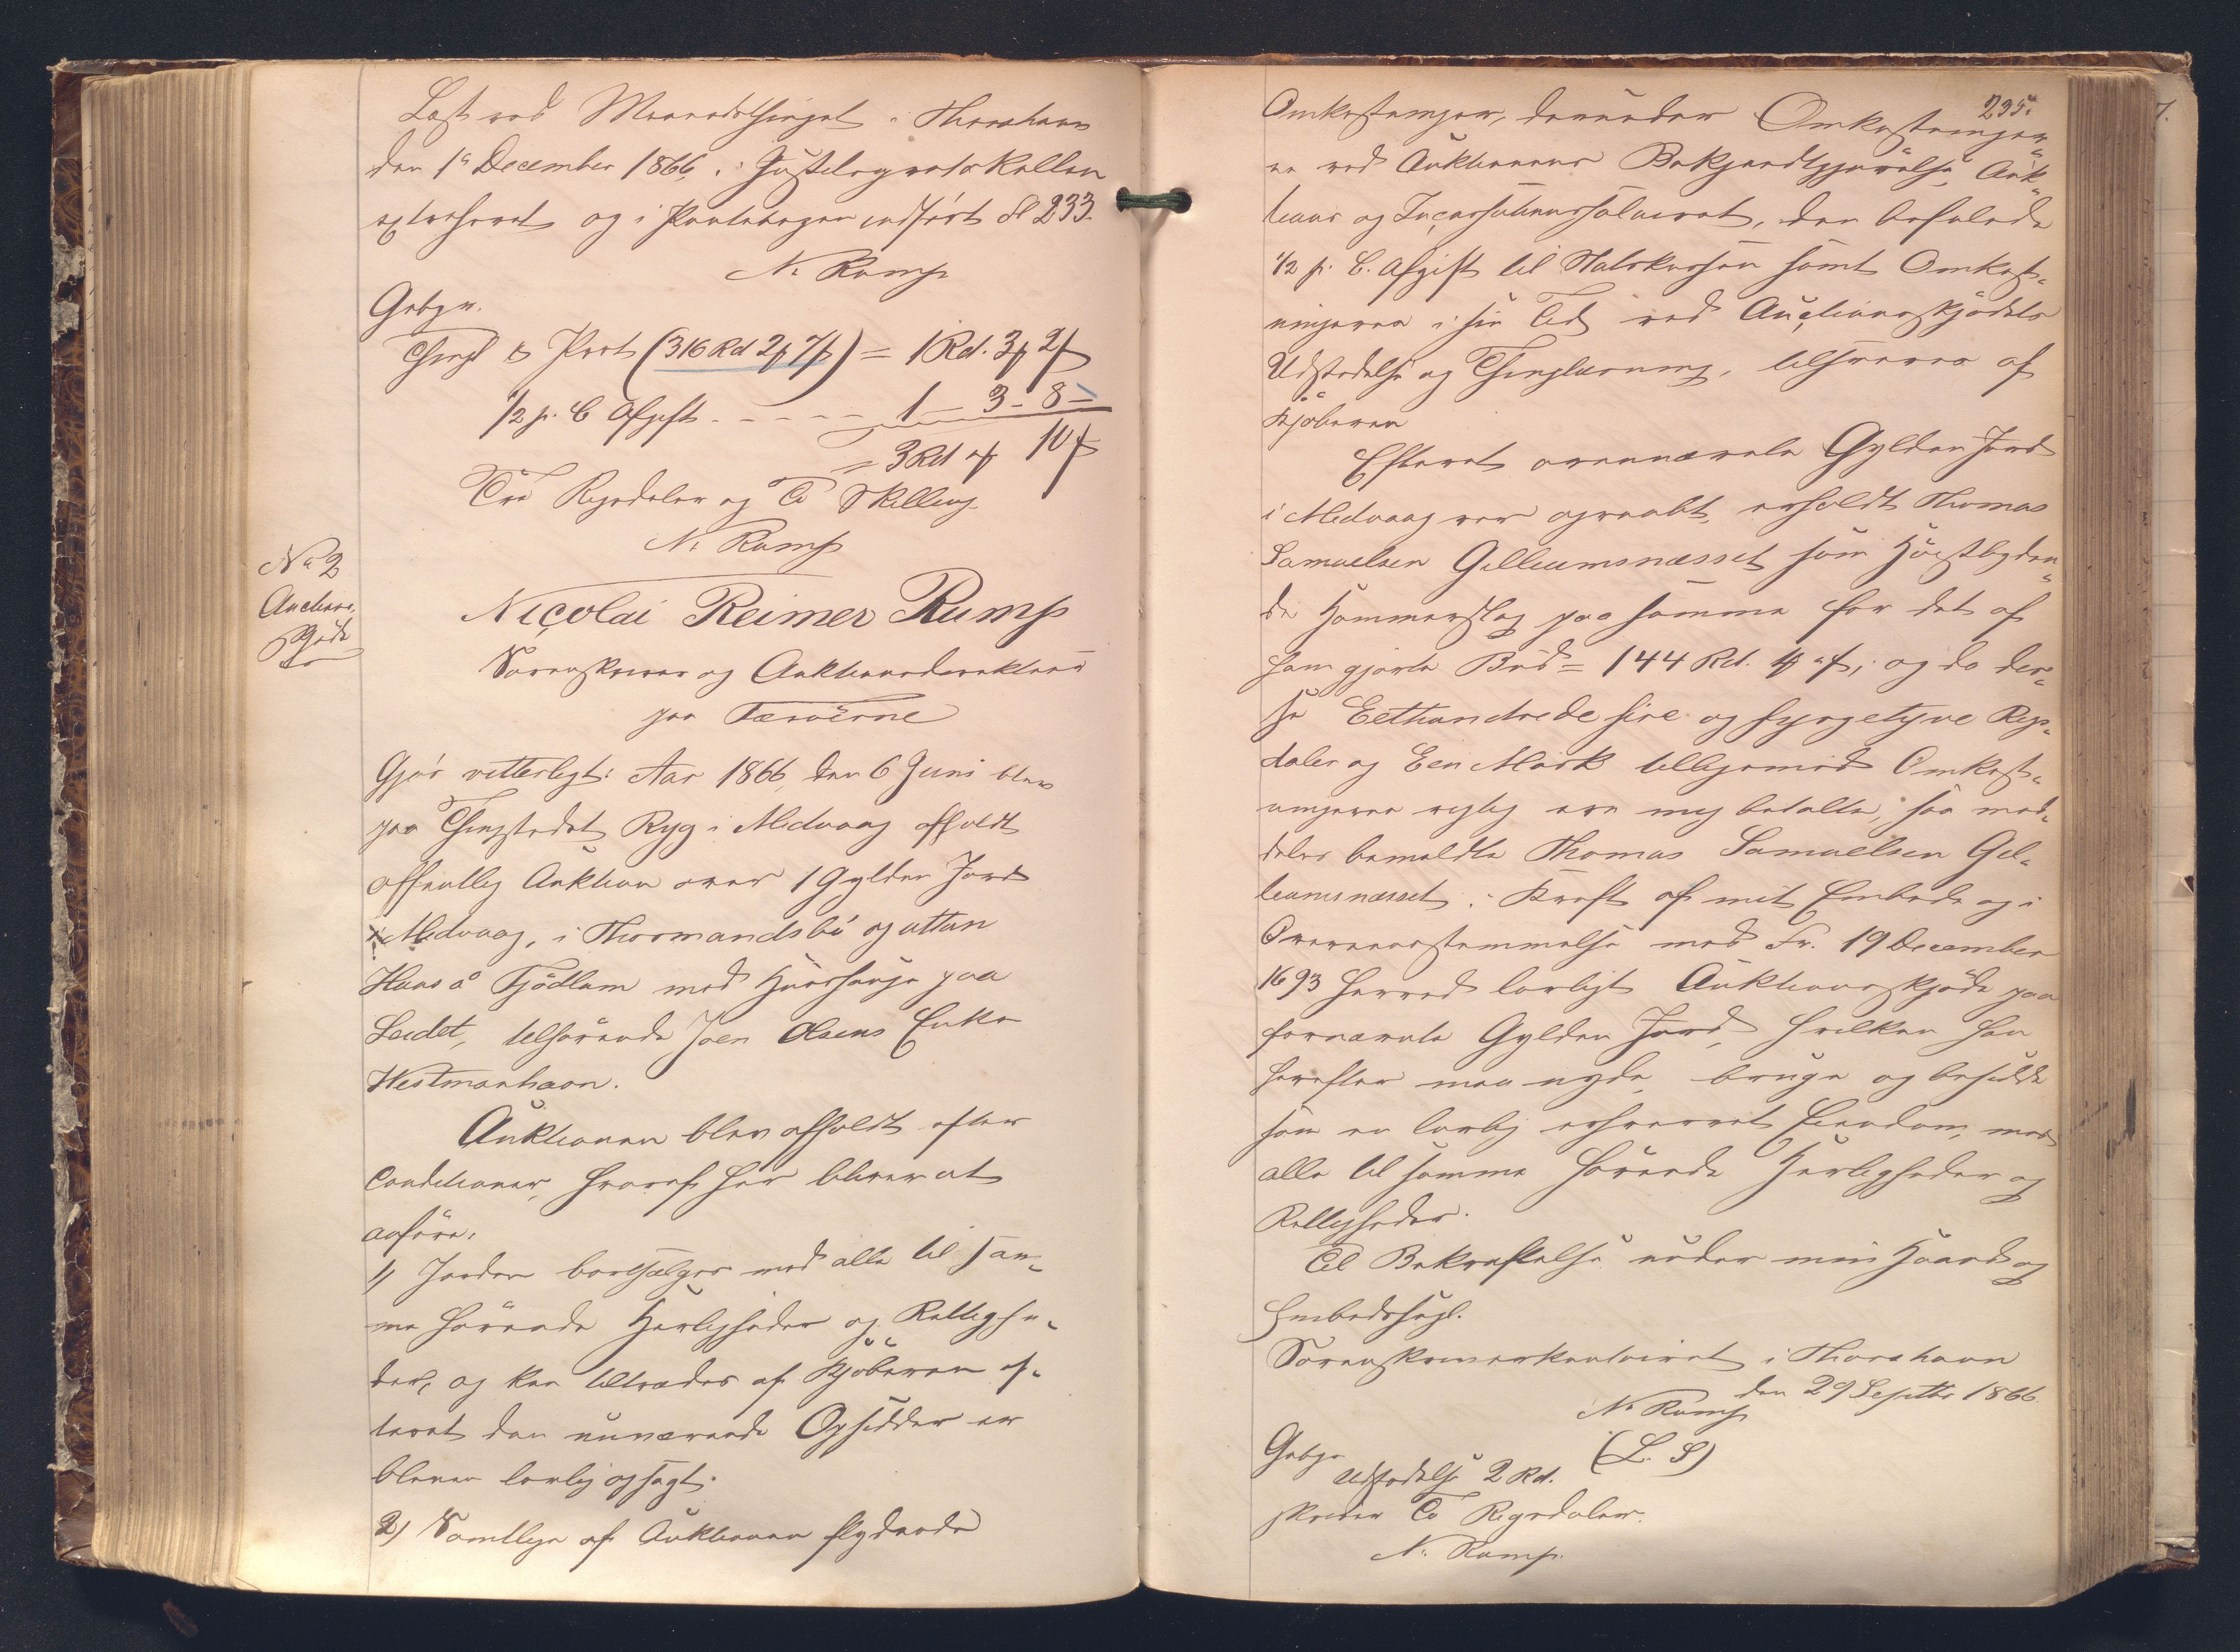 Læst ved Maanedsthinget i Thorshavn
den 1ᵉ December 1866, i Justitsprotokollen
extraheret og i Pantebogen indført Fol 233.
N. Rump
Gebyr.
Thingl & Prot (316 Rd 2 ₰ 7 ß) = 1 Rd. 3 ₰ 2 ß
1/2 p. C Afgift - - - - - 1 - 3 - 8 -
= 3 Rd " ₰ 10 ß
Tre Rigsdaler og Ti Skilling
N. Rump
No 2
Auctions
Skjøde
Nicolai Reimer Rump
Sorenskriver og Auktionsdirekteur
paa Færøerne
Gjør vitterligt: Aar 1866, den 6 Juni blev
paa Thingstedet Ryg i Midvaag afholdt
offentlig Auktion over 1 Gylden Jord
i Midvaag, i Thormandsbø og uttan
Haus å Tjødlum med Huushauge paa
Leidet, tilhørende Joen Olsens Enke
Westmanhavn.
Auktionen blev afholdt efter
Conditioner, hvoraf her bliver at
anføre:
1) Jorden bortsælges med alle til sam-
me hørende Herligheder og Rettighe-
der, og kan tiltrædes af Kjøberen ef-
terat den nuværende Opsidder er
bleven lovlig opsagt.
2) Samtlige af Auktionen flydende
235.
Omkostninger, derunder Omkostninger-
ne ved Auktionens Bekjendtgjørelse, Auk-
tions og Incassationssalairet, den befalede
1/2 p. C. Afgift til Statskassen samt Omkost-
ningerne i sin Tid ved Auctionsskjødets
Udstedelse og Thinglæsning, tilsvares af
Kjøberen
Efterat ovennævnte Gylden Jord
i Midvaag var opraabt, erholdt Thomas
Samuelsen Gilliumsnæsset som Høistbyden-
de Hammerslag paa samme for det af
ham gjorte Bud = 144 Rd. 1 ₰ " ß, og da dis-
se Eethundrede fire og fyrgetyve Rigs-
daler og Een Mark tilligemed Omkost-
ningerne rigtig ere mig betalte, saa med-
deles bemeldte Thomas Samuelsen Gil-
liumsnæsset i Kraft af mit Embede og i
Overeensstemmelse med Fr. 19 December
1693 herved lovligt Auktionsskjøde paa
fornævnte Gylden Jord, hvilken han
herefter maa nyde, bruge og besidde
som en lovlig erhvervet Eiendom, med
alle til samme hørende Herligheder og
Rettigheder.
Til Bekræftelse under min Haand og
Embedssegl.
Sorenskriverkontoiret i Thorshavn
den 29 Septbr 1866.
N. Rump
(L. S)
Gebyr
Udstedelse 2 Rd.
skriver To Rigsdaler.
N. Rump.